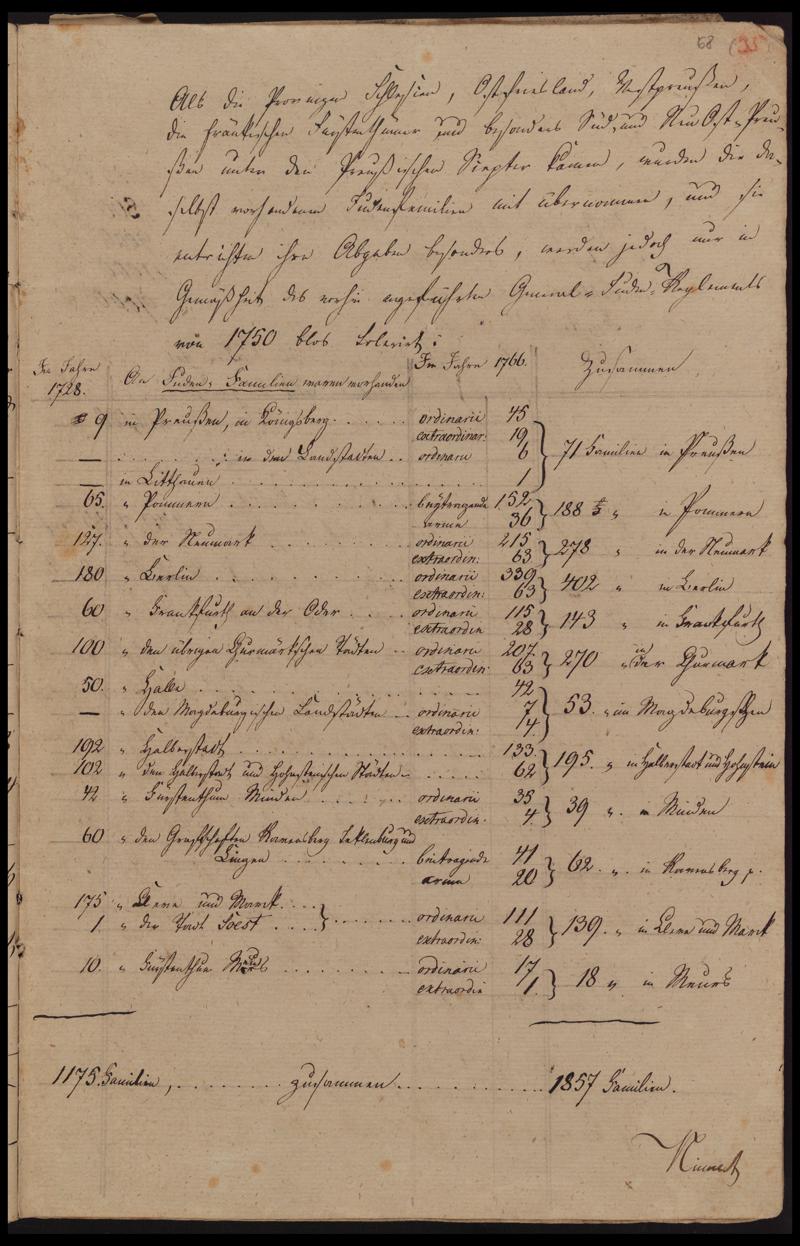 68 (35)
Als die Provinzen Schlesien, Ostfriesland, Westpreußen,
die Fränkischen Fürstenthümer und besonders Süd- und Neu Ost-Preu-
ßen unter den Preußischen Szepter kamen, wurden die da-
selbst vorhandenen Judenfamilien mit übernommen, und sie
entrichten ihre Abgaben besonders, werden jedoch nur in
Gemäßheit des vorhin angeführten General-Juden-Reglements
von 1750 blos tolerirt:
Im Jahre 1728. An Juden-Familien waren vorhanden Im Jahre 1766. Zusammen
9 in Preußen, in Königsberg ordinarii 45
extraordinar: 19
— in den Landstädten ordinarii 6 71 Familien in Preußen
— in Litthauen 1
65. " Pommern beytragende 152
arme 36 188 " in Pommern
127. " der Neumark ordinarii 215
extraordin: 63 278 " in der Neumark
180 " Berlin ordinarii 339
extraordin: 63 402 " in Berlin
60 " Frankfurth an der Oder ordinarii 115
extraordin 28 143 " in Frankfurth
100 " den übrigen Churmärkschen Städten ordinarii 207.
extraordin: 63 270 " in der Churmark
50. " Halle 42
— " den Magdeburgischen Landstädten ordinarii 7 53. " im Magdeburgschen
extraordin: 4.
192 " Halberstadt 133.
102 " den Halberstadt und Hohnsteinschen Städten 62 195. " in Halberstadt und Hohnstein
42 " Fürstenthum Minden ordinarii 35
extraordin. 4. 39 " in Minden
60 " den Grafschaften Ravensberg Tecklenburg und
Lingen beitragende 41
arme 20 62. " in Ravensberg p.
175 " Cleve und Marck
1. " der Stadt Soest ordinarii 111
extraordin: 28 139. " in Cleve und Marck
10. " Fürstenthum Meurs ordinarii 17
extraordin 1. 18 " in Meurs
1175. Familien, zusammen 1857 Familien.